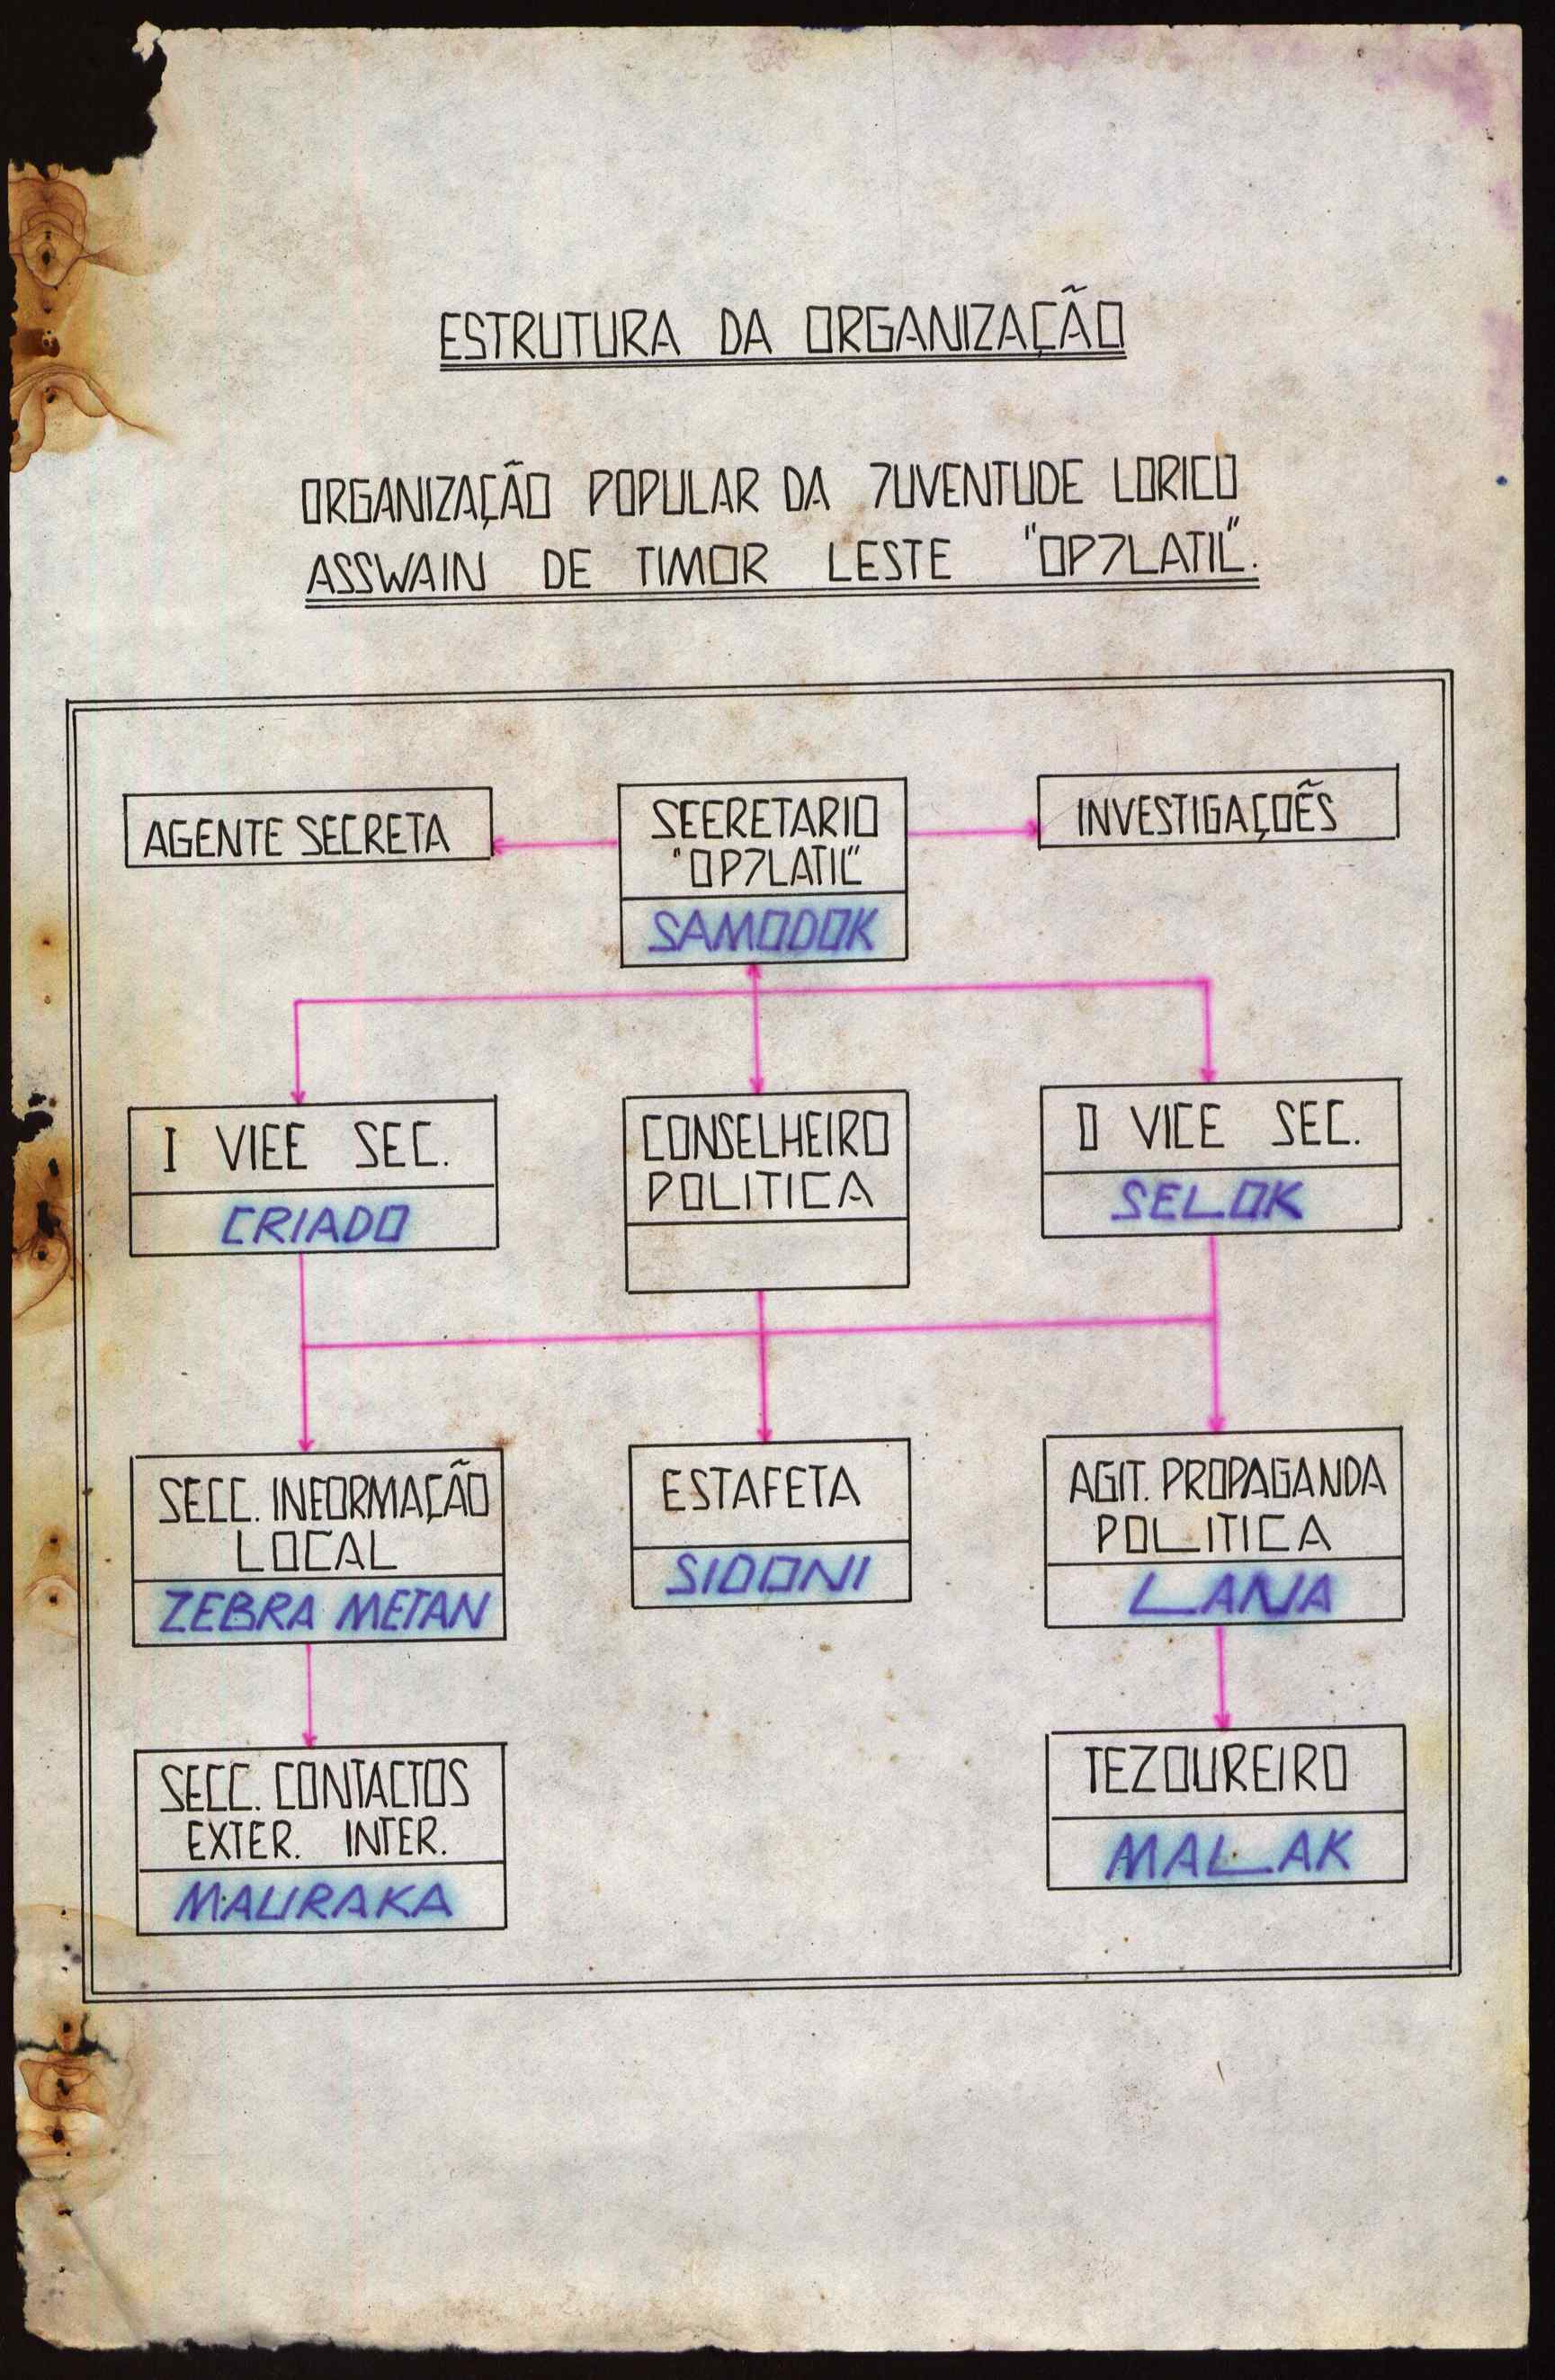 ESTRUTURA DA ORGANIZAÇÃO
ORGANIZAÇÃO POPULAR DA JUVENTUDE LORICO
ASSWAIN DE TIMOR LESTE "OPJLATIL".
AGENTE SECRETA
SECRETARIO
"OPJLATIL"
SAMODOK
INVESTIGAÇOẼS
I VICE SEC.
CRIADO
CONSELHEIRO
POLITICA
II VICE SEC.
SELOK
SECC. INFORMAÇÃO
LOCAL
ZEBRA METAN
ESTAFETA
SIDONI
AGIT. PROPAGANDA
POLITICA
LANA
SECC. CONTACTOS
EXTER. INTER.
MAURAKA
TEZOUREIRO
MALAK